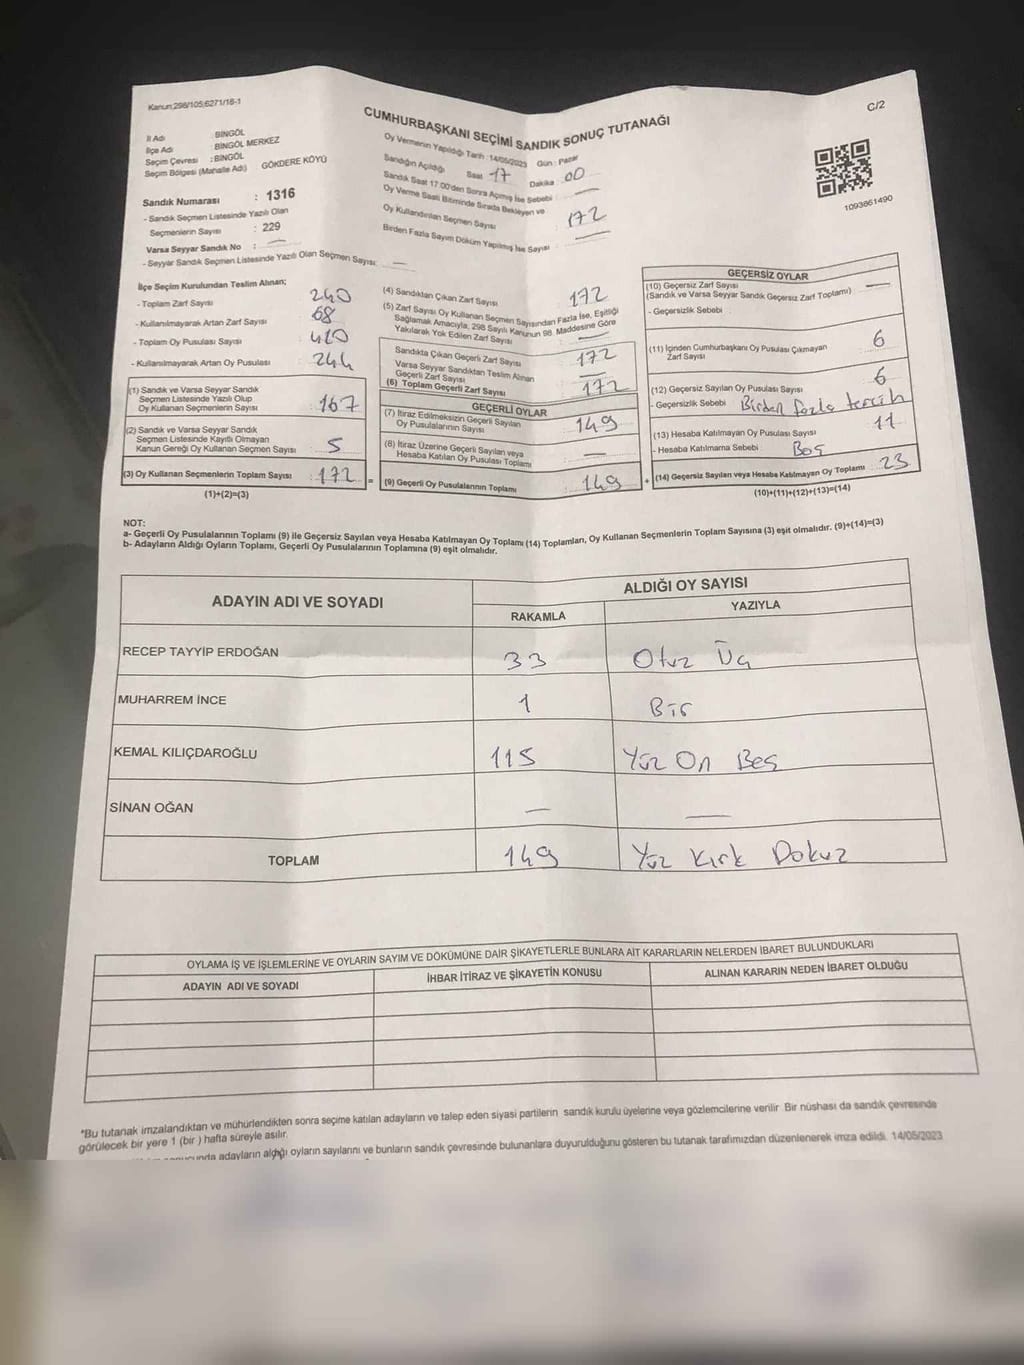 Kanun:298/105;6271/18-1
C/2
CUMHURBAŞKANI SEÇİMİ SANDIK SONUÇ TUTANAĞI
İl Adı : BİNGÖL
İlçe Adı : BİNGÖL MERKEZ
Seçim Çevresi : BİNGÖL
Seçim Bölgesi (Mahalle Adı) GÖKDERE KÖYÜ
Sandık Numarası : 1316
- Sandık Seçmen Listesinde Yazılı Olan
Seçmenlerin Sayısı : 229
Varsa Seyyar Sandık No : —
- Seyyar Sandık Seçmen Listesinde Yazılı Olan Seçmen Sayısı: —
Oy Vermenin Yapıldığı Tarih : 14/05/2023 Gün : Pazar
Sandığın Açıldığı Saat 17 Dakika 00
Sandık Saat 17:00'den Sonra Açmış İse Sebebi —
Oy Verme Saati Bitiminde Sırada Bekleyen ve
Oy Kullandırılan Seçmen Sayısı 172
Birden Fazla Sayım Döküm Yapılmış İse Sayısı —
1093861490
İlçe Seçim Kurulundan Teslim Alınan;
- Toplam Zarf Sayısı 240
- Kullanılmayarak Artan Zarf Sayısı 68
- Toplam Oy Pusulası Sayısı 410
- Kullanılmayarak Artan Oy Pusulası 244
(1) Sandık ve Varsa Seyyar Sandık
Seçmen Listesinde Yazılı Olup
Oy Kullanan Seçmenlerin Sayısı : 167
(2) Sandık ve Varsa Seyyar Sandık
Seçmen Listesinde Kayıtlı Olmayan
Kanun Gereği Oy Kullanan Seçmen Sayısı : 5
(3) Oy Kullanan Seçmenlerin Toplam Sayısı : 172 =
(1)+(2)=(3)
(4) Sandıktan Çıkan Zarf Sayısı 172
(5) Zarf Sayısı Oy Kullanan Seçmen Sayısından Fazla İse, Eşitliği
Sağlamak Amacıyla, 298 Sayılı Kanunun 98. Maddesine Göre
Yakılarak Yok Edilen Zarf Sayısı —
Sandıkta Çıkan Geçerli Zarf Sayısı : 172
Varsa Seyyar Sandıktan Teslim Alınan
Geçerli Zarf Sayısı —
(6) Toplam Geçerli Zarf Sayısı : 172
GEÇERLİ OYLAR
(7) İtiraz Edilmeksizin Geçerli Sayılan
Oy Pusulalarının Sayısı 149
(8) İtiraz Üzerine Geçerli Sayılan veya
Hesaba Katılan Oy Pusulası Toplamı —
(9) Geçerli Oy Pusulalarının Toplamı : 149 +
GEÇERSİZ OYLAR
(10) Geçersiz Zarf Sayısı
(Sandık ve Varsa Seyyar Sandık Geçersiz Zarf Toplamı) —
- Geçersizlik Sebebi :
(11) İçinden Cumhurbaşkanı Oy Pusulası Çıkmayan
Zarf Sayısı 6
(12) Geçersiz Sayılan Oy Pusulası Sayısı 6
- Geçersizlik Sebebi : Birden fazla tercih
(13) Hesaba Katılmayan Oy Pusulası Sayısı 11
- Hesaba Katılmama Sebebi : Boş
(14) Geçersiz Sayılan veya Hesaba Katılmayan Oy Toplamı : 23
(10)+(11)+(12)+(13)=(14)
NOT:
a- Geçerli Oy Pusulalarının Toplamı (9) ile Geçersiz Sayılan veya Hesaba Katılmayan Oy Toplamı (14) Toplamları, Oy Kullanan Seçmenlerin Toplam Sayısına (3) eşit olmalıdır. (9)+(14)=(3)
b- Adayların Aldığı Oyların Toplamı, Geçerli Oy Pusulalarının Toplamına (9) eşit olmalıdır.
ADAYIN ADI VE SOYADI
ALDIĞI OY SAYISI
RAKAMLA YAZIYLA
RECEP TAYYİP ERDOĞAN 33 Otuz Üç
MUHARREM İNCE 1 Bir
KEMAL KILIÇDAROĞLU 115 Yüz On Beş
SİNAN OĞAN — —
TOPLAM 149 Yüz Kırk Dokuz
OYLAMA İŞ VE İŞLEMLERİNE VE OYLARIN SAYIM VE DÖKÜMÜNE DAİR ŞİKAYETLERLE BUNLARA AİT KARARLARIN NELERDEN İBARET BULUNDUKLARI
ADAYIN ADI VE SOYADI İHBAR İTİRAZ VE ŞİKAYETİN KONUSU ALINAN KARARIN NEDEN İBARET OLDUĞU
*Bu tutanak imzalandıktan ve mühürlendikten sonra seçime katılan adayların ve talep eden siyasi partilerin sandık kurulu üyelerine veya gözlemcilerine verilir. Bir nüshası da sandık çevresinde
görülecek bir yere 1 (bir ) hafta süreyle asılır.
adayların aldığı oyların sayılarını ve bunların sandık çevresinde bulunanlara duyurulduğunu gösteren bu tutanak tarafımızdan düzenlenerek imza edildi. 14/05/2023